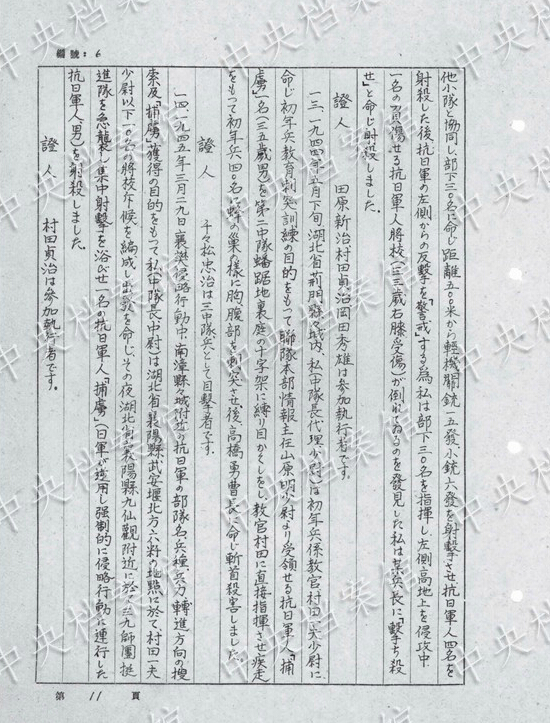 編號: 6
他小隊と協同し、部下三〇名に命じ距離五〇〇米から輕機関銃一五發小銃六發を射撃させ抗日軍人四名を
射殺した後抗日軍の左側からの反撃を「警戒」する為、私は部下三〇名を指揮し左側高地上を侵攻中、
一名の負傷せる抗日軍人將校(二三歳右膝受傷)が倒れゐるのを發見した私は某兵長に「撃ち殺
せ」と命じ射殺しました。
證人 田原新治、村田貞治、岡田秀雄は参加執行者です。
一三、一九四四年五月下旬湖北省荊門縣城内、私(中隊長代理少尉)は初年兵係教官村田一夫少尉に
命じ初年兵教育刺突訓練の目的をもつて聯隊本部情報主任山原明少尉より受領せる抗日軍人「捕
虜」一名(三五歳男)を第二中隊蟠踞地裏庭の十字架に縛り目かくしをし、教官村田に直接指揮させ疾走
をもつて初年兵四〇名に蜂の巣の様に胸、腹部を刺突させ後、高橋勇曹長に命じ斬首殺害しました。
證人 千々松忠治は三中隊兵として目撃者です。
一四、一九四五年三月二九日襄樊侵略行動中、南漳縣城附近の抗日軍の部隊名、兵種、兵力轉進方向の捜
索及「捕虜」獲得の目的をもつて私(中隊長中尉)は湖北省襄陽縣武安堰北方六粁の地點に於て村田一夫
少尉以下一〇名の將校斥候を編成し出發を命じ、その夜湖北省襄陽縣九仙觀附近に於て三九師團挺
進隊を急襲し集中射撃を浴びせ一名の抗日軍人「捕虜」(日軍が使用し强制的に侵略行動に連行した
抗日軍人、男)を射殺しました。
證人 村田貞治は参加執行者です。
第 11 頁
中央档案馆